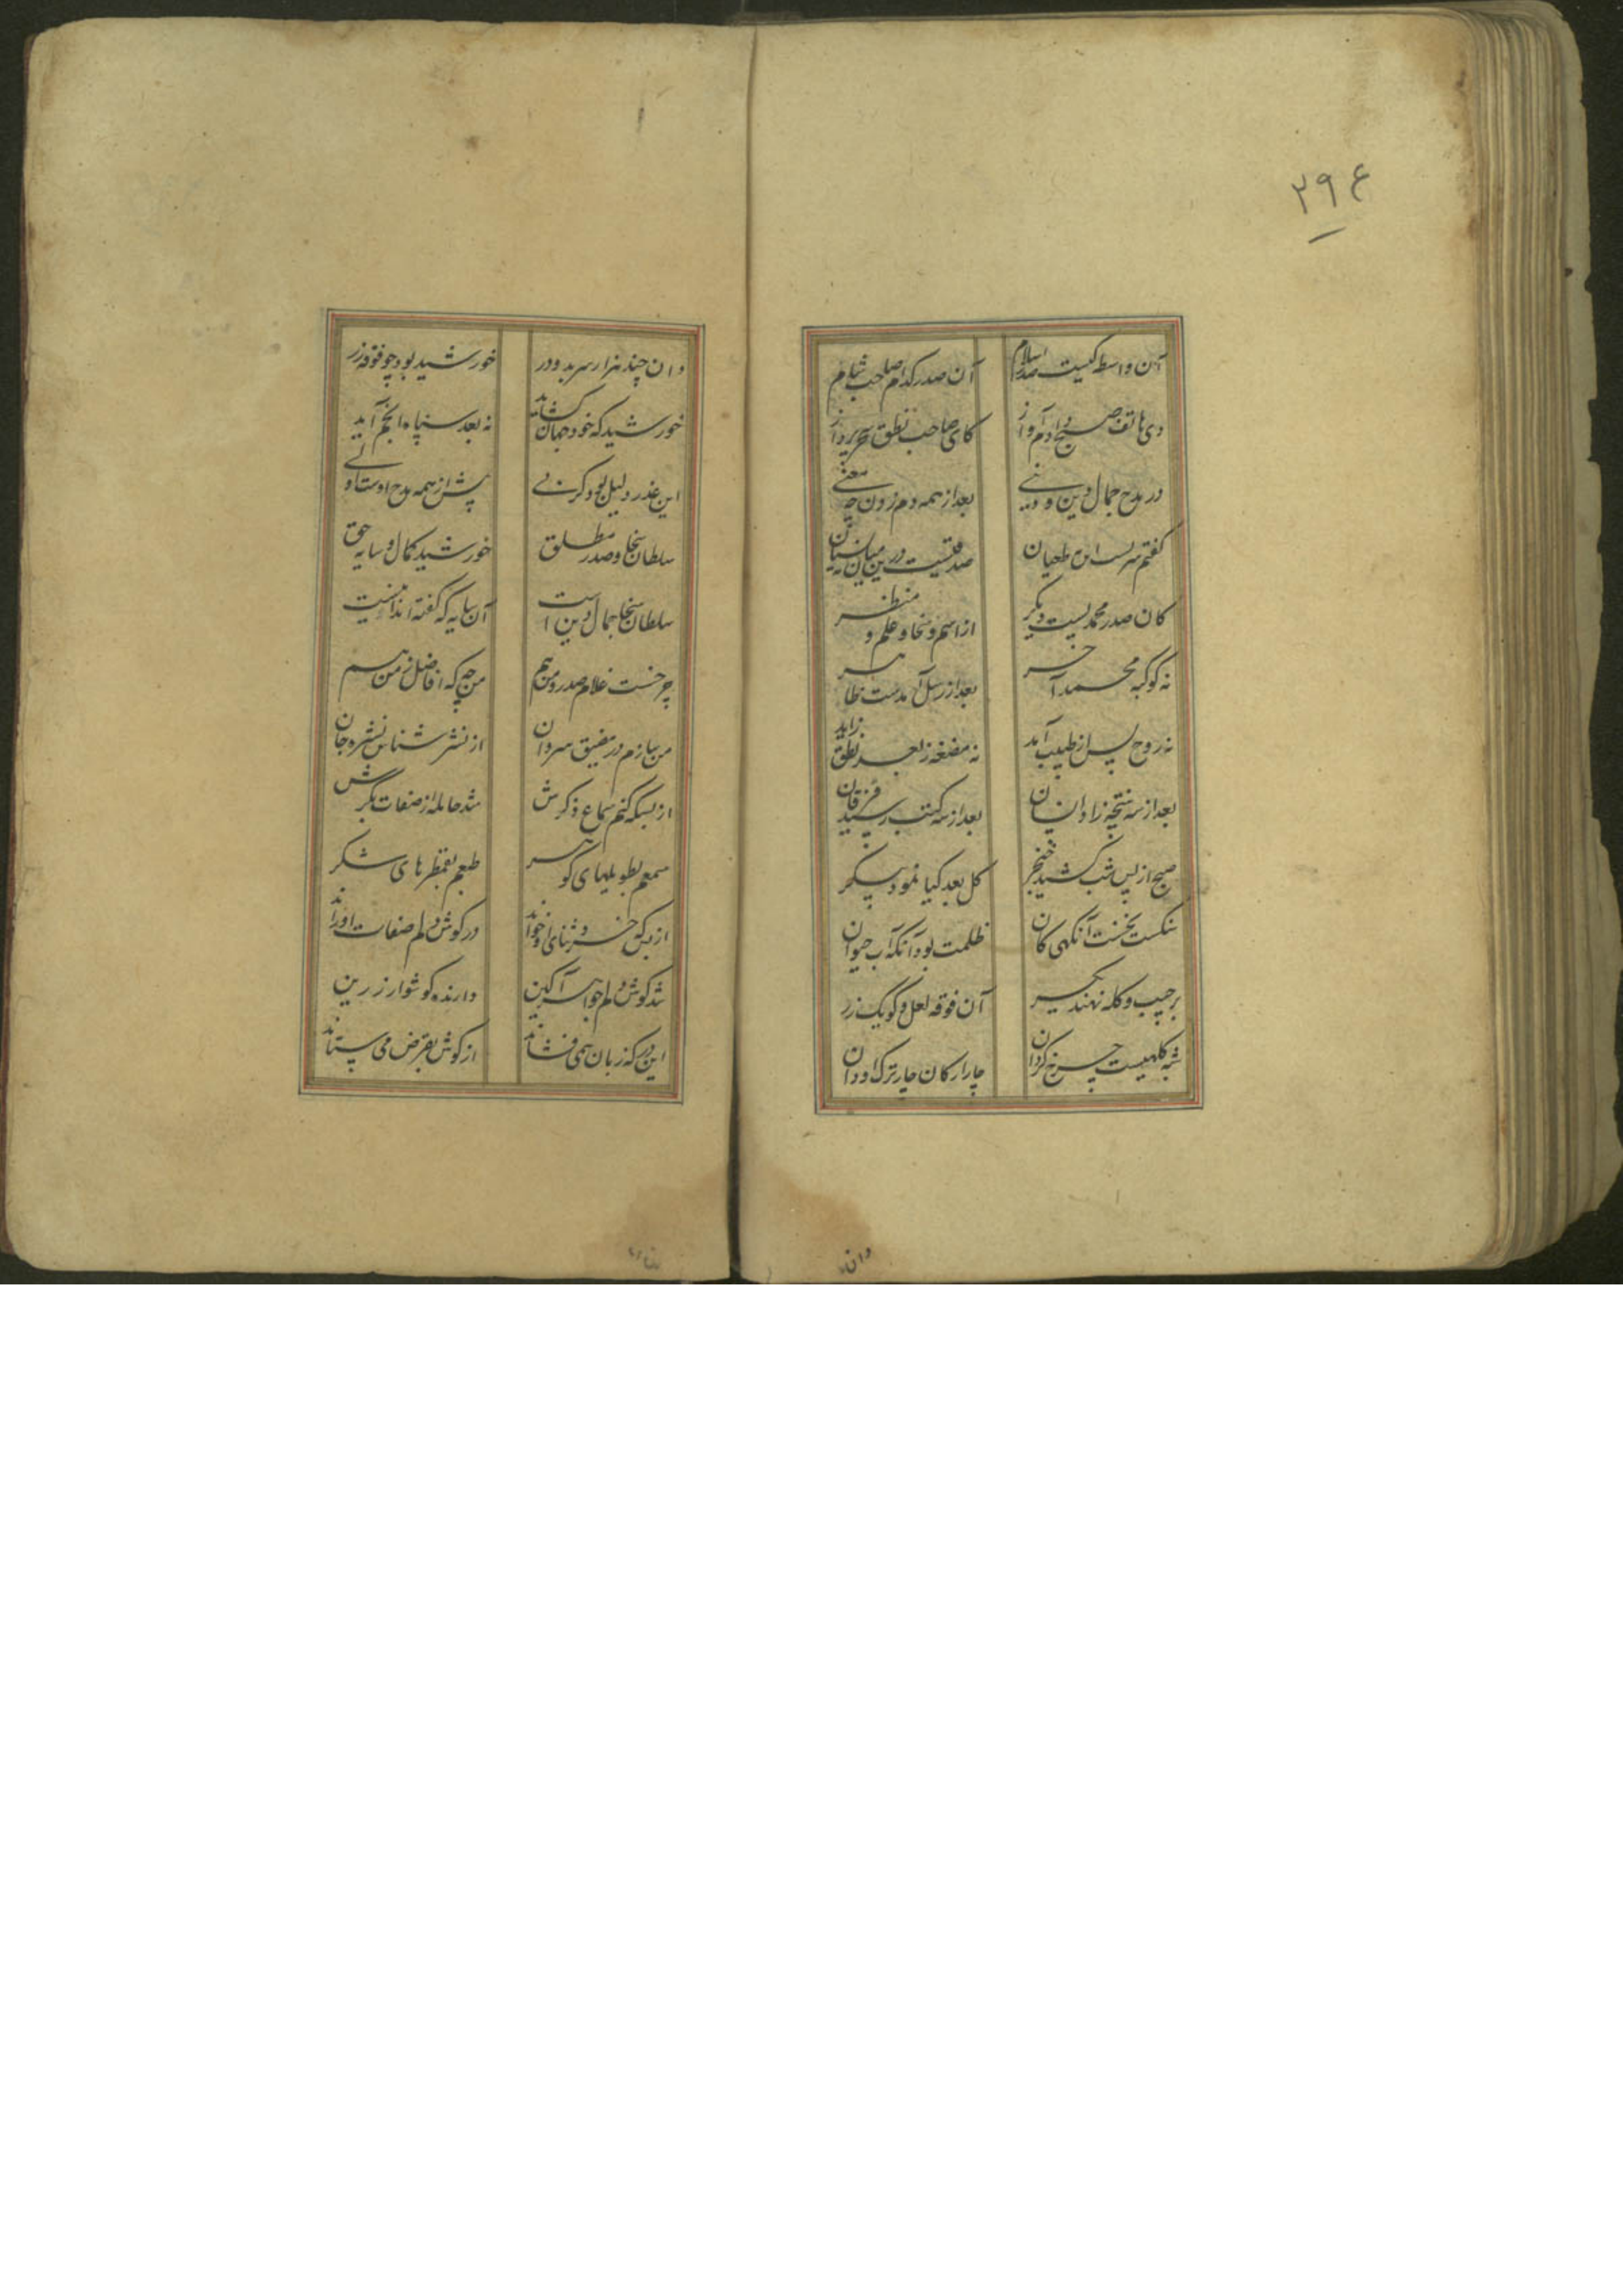 ۲۹۶
آن واسطه کیست صدر اسلام آن صدر کدام صاحب شام
دی هاتف صبح دادم آواز کای صاحب نطق سحر پرداز
در مدح جمال دین و دنیی بعد از همه دم زدن چه معنی
گفتم سریست این طعیان صد فتنیست درین میان
کان صدر محمدیست دیگر از اسم و سخا و علم و منظر
نه کوکبه محمد آخر بعد از رسل آمدست ظاهر
نه روح پس از طبیب آید نه مضغه ز بعد نطق زاید
بعد از سه نتیجه زاد انسان بعد از سه کتب رسید فرقان
صبح از پس شب کشید خنجر گل بعد گیا نمود پیکر
سنگست نخست آنگهی کان ظلمت بود آنگه آب حیوان
بر جیب و کله نهند یکسر آن فوقه لعل و گویک زر
شبه کلهیست چرخ گردان چار ارکان چار ترک او دان
دان
وان چند هزار سر بد و در خورشید بود چو فوقه زر
خورشید که خود جهان گشاید نه بعد سپاه انجم آید
این عذر دلیل بود کرنی پیش از همه مدح اوست اولی
سلطان سخا و صدر مطلق خورشید کمال و سایه حق
سلطان سخا جمال دین است آن سایه که گفته‌اند اینست
چرخست غلام صدر و من هم من چه که افاضل زمن هم
من بیازم در مضیق سروان از نشر شناس نشره جان
از بسکه کنم سماع ذکرش شد حامله از صفات بکرش
سمعم بطویلهای گوهر طبعم بقمطرهای شکر
از بس که خرد ثنای او خواند در گوش دلم صفات او راند
شد گوش دلم جواهر آگین دارنده گوشوار زرین
این در که زبان همی فشاند از گوش بقرض می ستاند